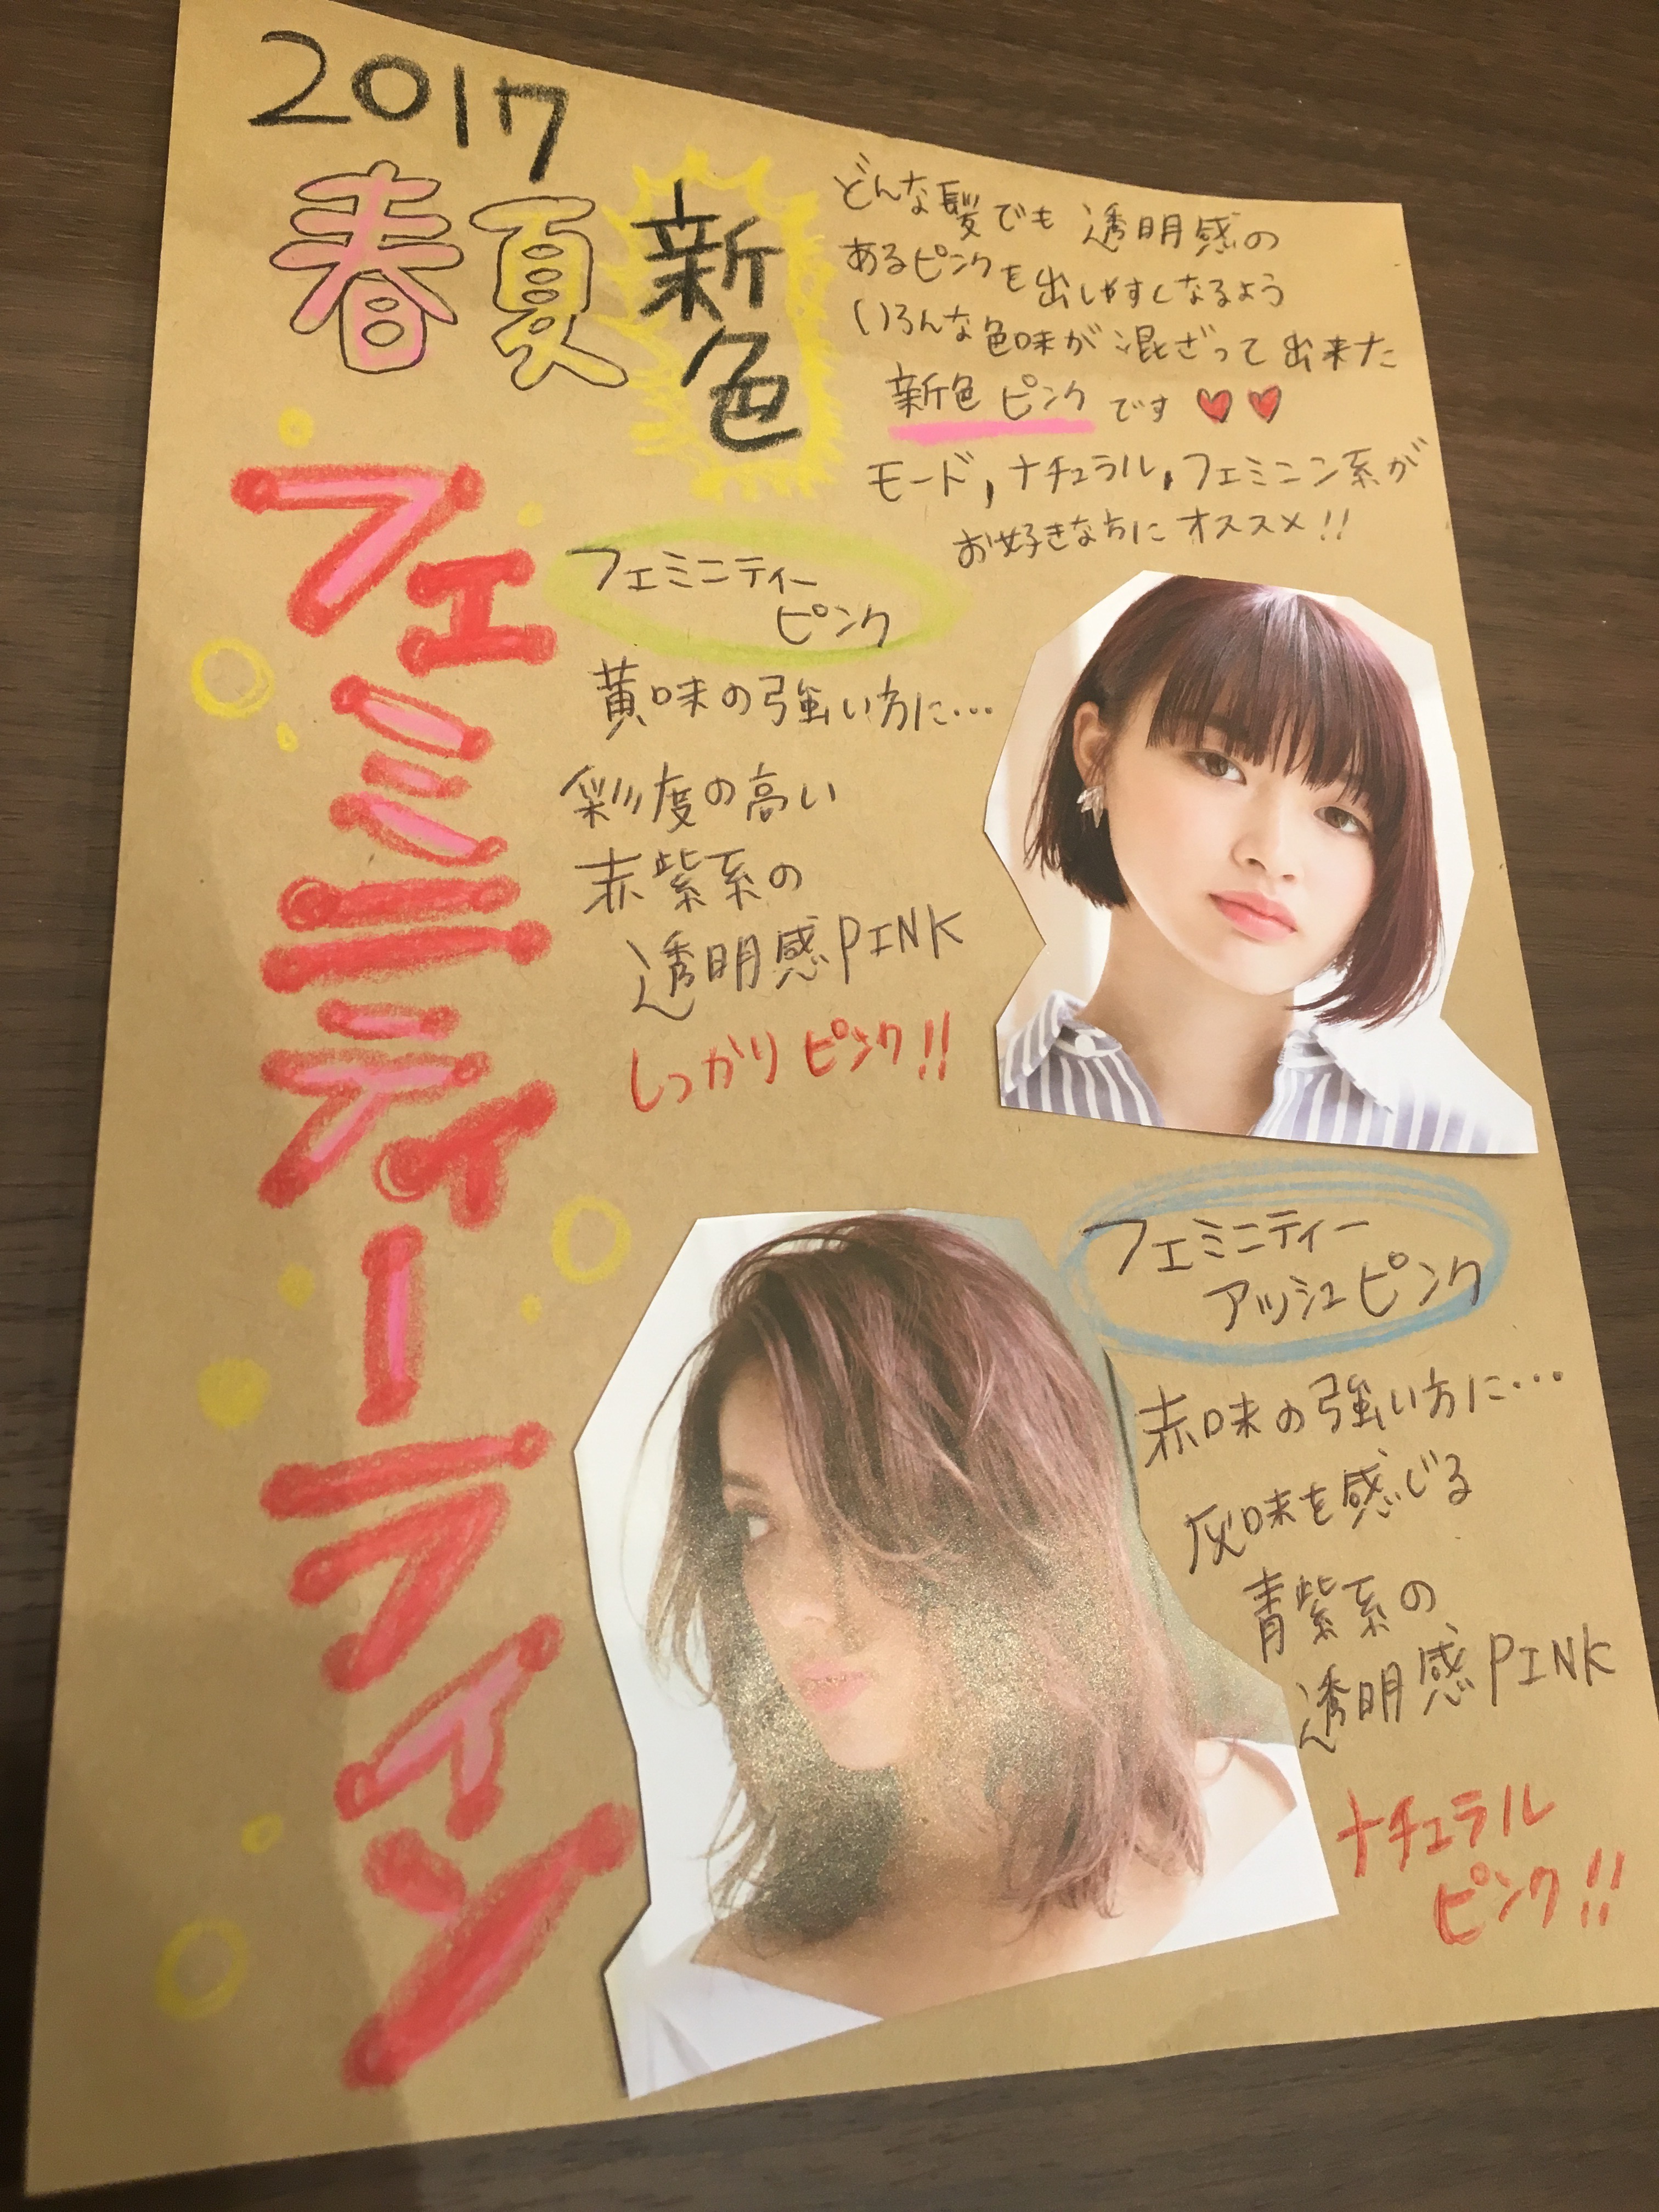 2017
春夏
新色
フェミニティーライン
どんな髪でも 透明感の
あるピンクを出しやすくなるよう
いろんな色味が混ざって出来た
新色 ピンク です ♥♥
モード,ナチュラル,フェミニン系が
お好きな方に オススメ!!
フェミニティー
ピンク
黄味の強い方に…
彩度の高い
赤紫系の
透明感PINK
しっかりピンク!!
フェミニティー
アッシュピンク
赤味の強い方に…
灰味を感じる
青紫系の
透明感PINK
ナチュラル
ピンク!!